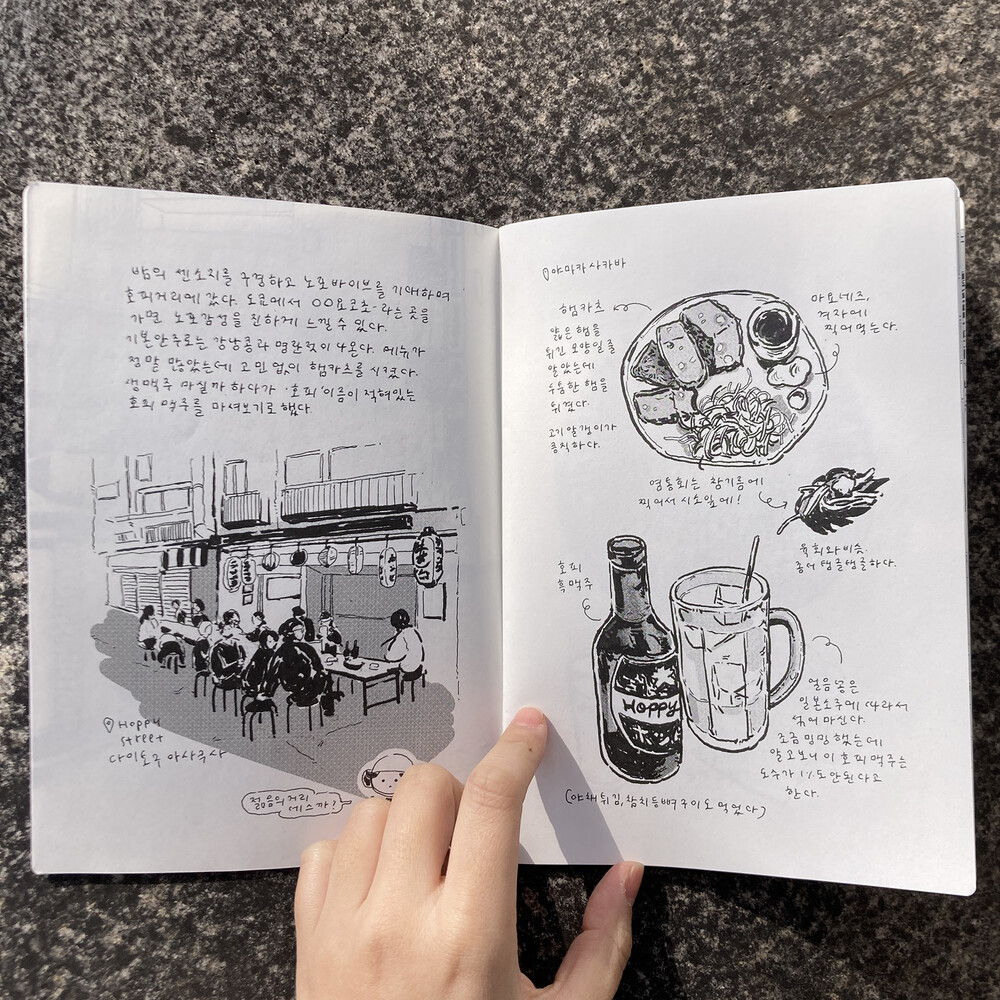 밤의 센소지를 구경하고 노포바이브를 기대하며
호피거리에 갔다. 도쿄에서 OO요코초-라는 곳을
가면 노포감성을 진하게 느낄 수 있다.
기본안주로는 강낭콩과 명란젓이 나온다. 메뉴가
정말 많았는데 고민 없이 햄카츠를 시켰다.
생맥주 마실까 하다가 '호피' 이름이 적혀있는
호피 맥주를 마셔보기로 했다.
Hoppy
street
다이토구 아사쿠사
젊음의 거리
데스까?
야마카 사카바
햄카츠
얇은 햄을
튀긴 모양일 줄
알았는데
두툼한 햄을
튀겼다.
고기 알갱이가
큼직하다.
마요네즈,
겨자에
찍어 먹는다.
염통회는 참기름에
찍어서 시소잎에!
육회와 비슷.
좀 더 탱글탱글하다.
호피
흑맥주
HOPPY
ホッピー
얼음 넣은
일본소주에 따라서
섞어 마신다.
조금 밍밍했는데
알고보니 이 호피 맥주는
도수가 1%도 안된다고
한다.
(야채튀김, 참치등뼈구이도 먹었다)